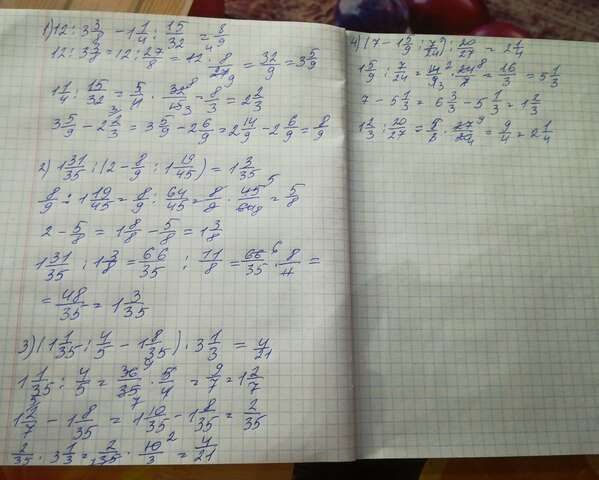 1) 12 : 3 3/8 - 1 1/4 : 15/32 = 8/9
12 : 3 3/8 = 12 : 27/8 = 12 · 8/27 = 32/9 = 3 5/9
1 1/4 : 15/32 = 5/4 · 32/15 = 8/3 = 2 2/3
3 5/9 - 2 2/3 = 3 5/9 - 2 6/9 = 2 14/9 - 2 6/9 = 8/9
2) 1 31/35 : (2 - 8/9 : 1 19/45) = 1 13/35
8/9 : 1 19/45 = 8/9 : 64/45 = 8/9 · 45/64 = 5/8
2 - 5/8 = 1 8/8 - 5/8 = 1 3/8
1 31/35 : 1 3/8 = 66/35 : 11/8 = 66/35 · 8/11 =
= 48/35 = 1 13/35
3) (1 1/35 : 4/5 - 1 8/35) · 3 1/3 = 4/21
1 1/35 : 4/5 = 36/35 · 5/4 = 9/7 = 1 2/7
1 2/7 - 1 8/35 = 1 10/35 - 1 8/35 = 2/35
2/35 · 3 1/3 = 2/35 · 10/3 = 4/21
4) (7 - 1 5/9 : 7/24) : 20/27 = 2 1/4
1 5/9 : 7/24 = 14/9 · 24/7 = 16/3 = 5 1/3
7 - 5 1/3 = 6 3/3 - 5 1/3 = 1 2/3
1 2/3 : 20/27 = 5/3 · 27/20 = 9/4 = 2 1/4